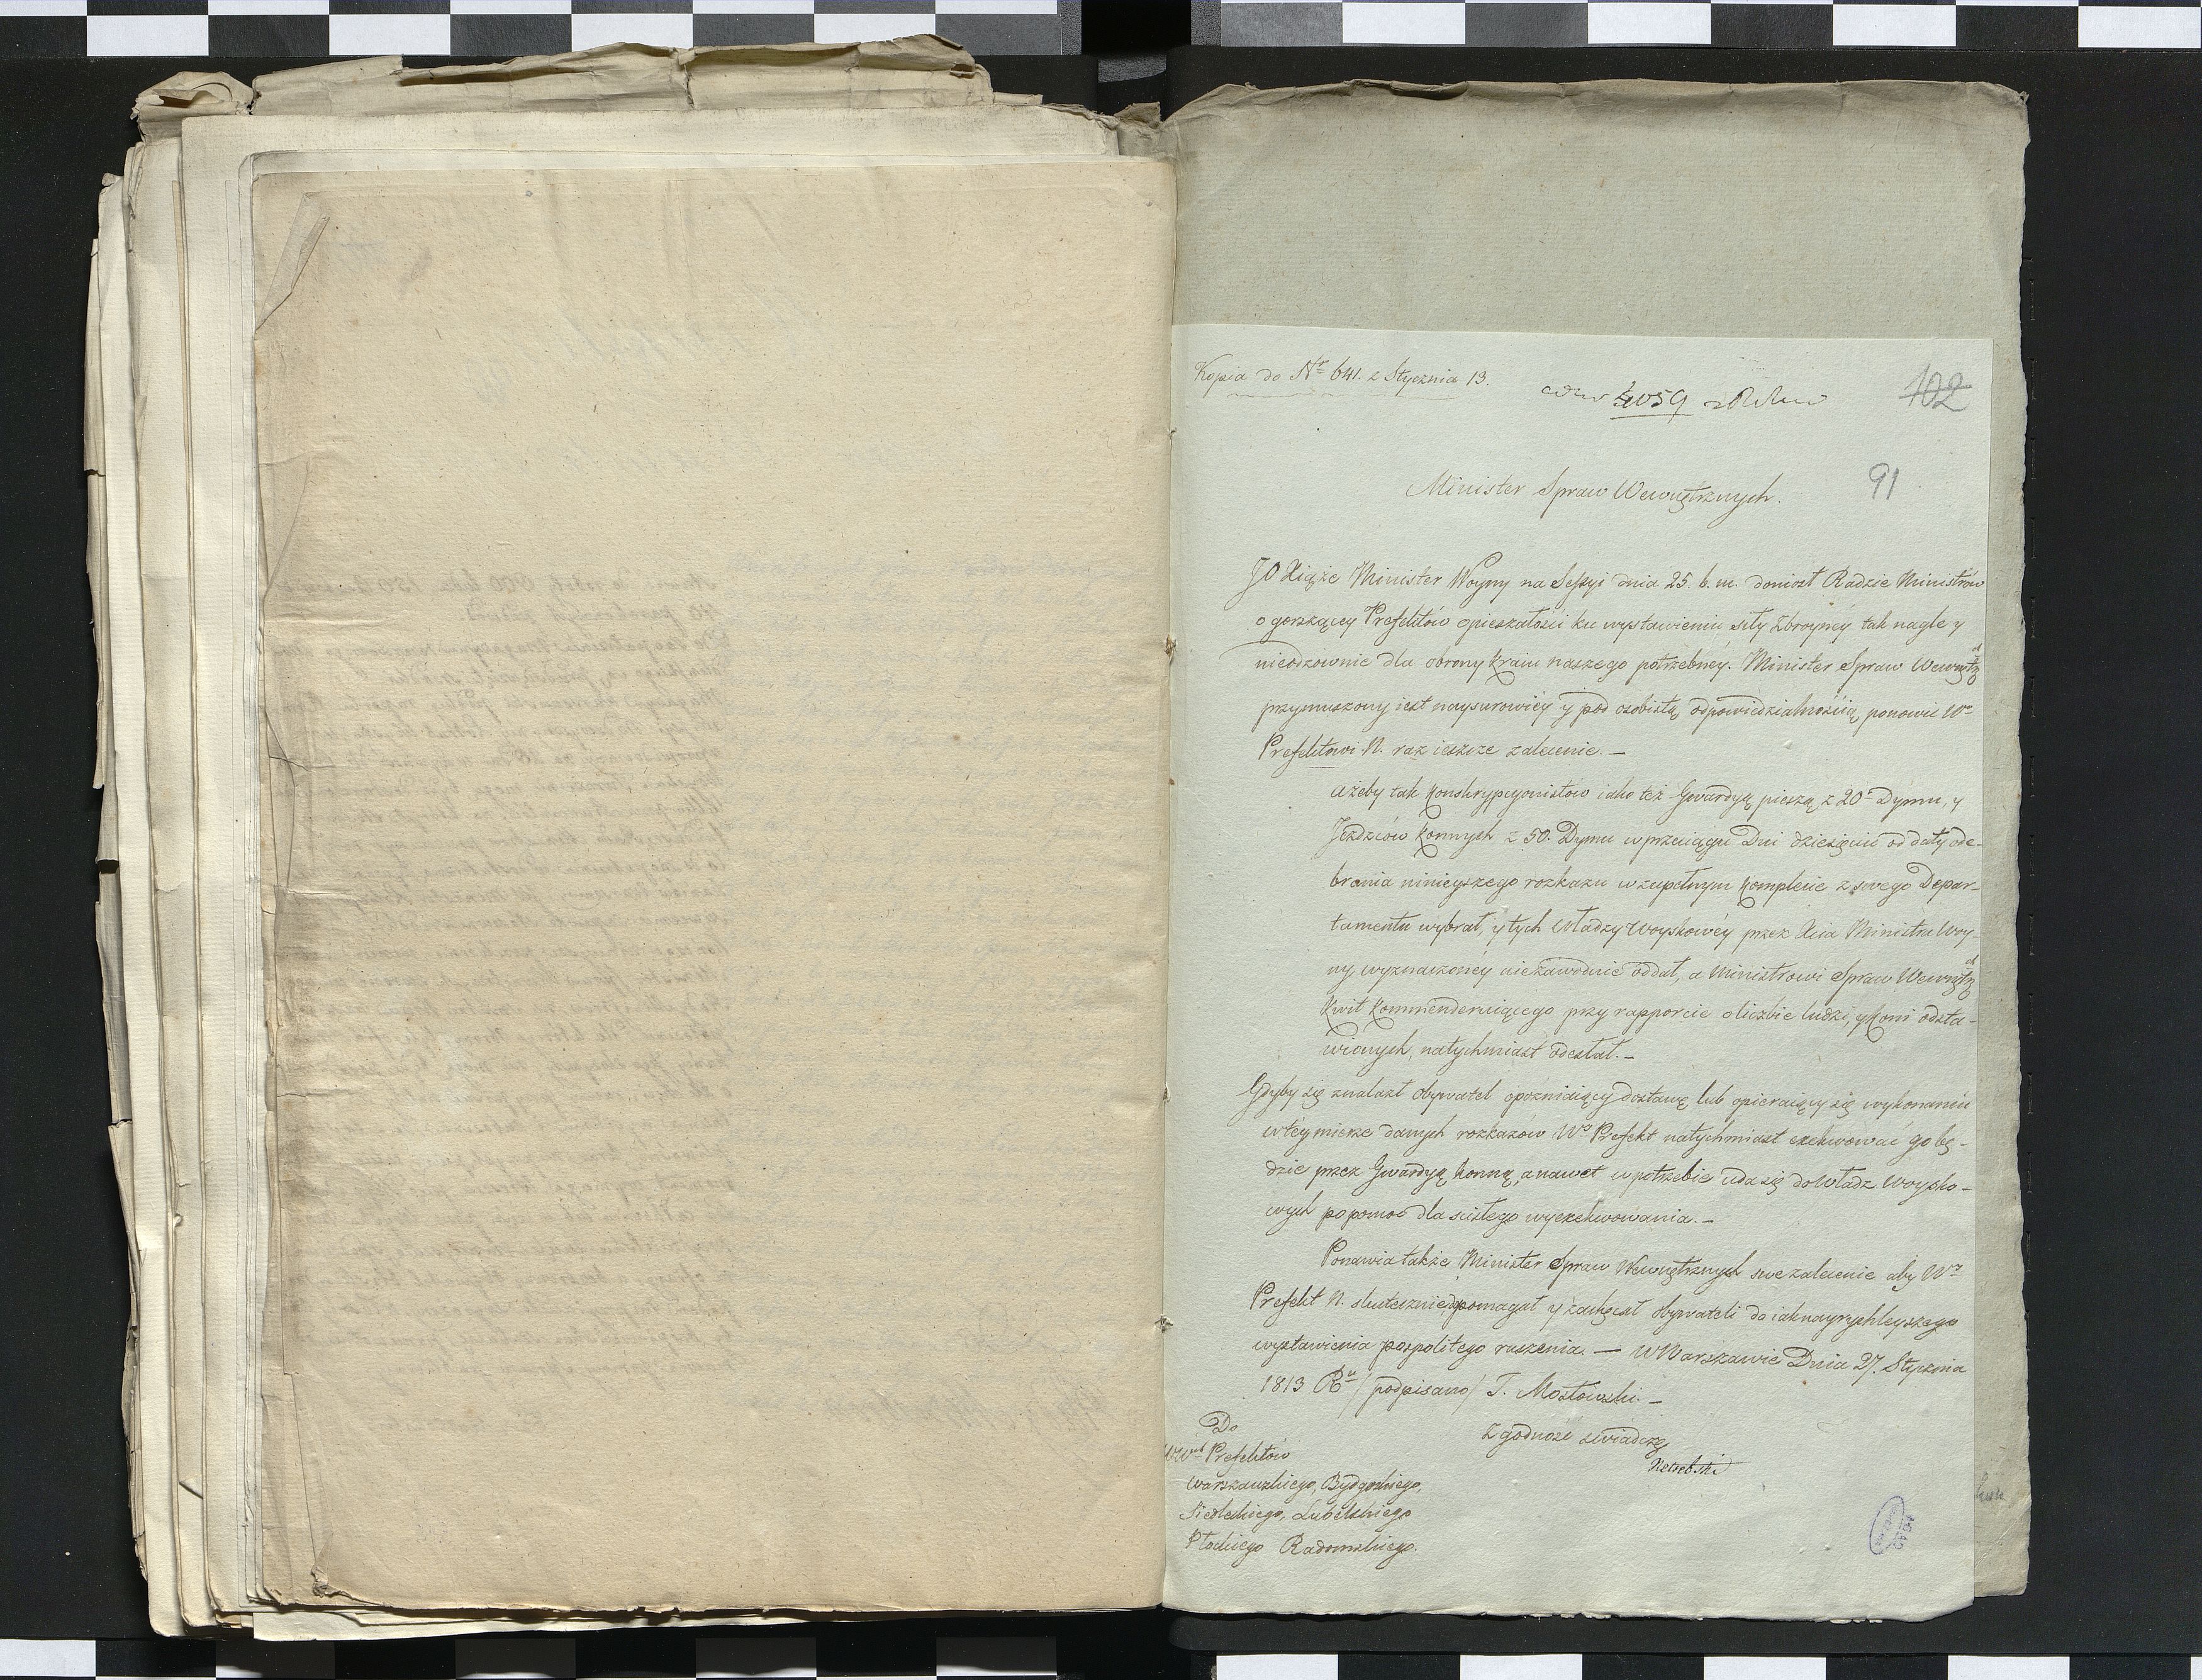 Kopia do Nr 641. z Stycznia 13.
4059
102
Minister Spraw Wewnętrznych.
91
JO Xiąże Minister Woyny na Sessyi dnia 25. b. m. doniosł Radzie Ministrów
o gorszącey Prefektów opieszałości ku wystawieniu siły zbroyney tak nagle y
nieodzownie dla obrony kraiu naszego potrzebney. Minister Spraw Wewnętrz
przymuszony iest naysurowiey y pod osobistą odpowiedzialnością ponowić Wo
Prefektowi N. raz ieszcze zalecenie. —
ażeby tak konskrypcyonistow iako też Gwardyą pieszą z 20. Dymu, y
Jezdzców konnych z 50. Dymu w przeciągu Dni dziesięciu od daty ode-
brania ninieyszego rozkazu w zupełnym komplecie z swego Depar-
tamentu wybrał, y tych Władzy Woyskowey przez Xcia Ministra Woy-
ny wyznaczoney niezawodnie oddał, a Ministrowi Spraw Wewnętrz
kwit kommenderuiącego przy rapporcie o liczbie ludzi, y koni odsta-
wionych, natychmiast odesłał. —
Gdyby się znalazł obywatel opozniaiący dostawę lub opieraiący się wykonaniu
w tey mierze danych rozkazow Wo Prefekt natychmiast exekwować go bę-
dzie przez Gwardyą konną, a nawet w potrzebie uda się do Władz Woysko-
wych po pomoc dla scisłego wyexekwowania. —
Ponawia także Minister Spraw Wewnętrznych swe zalecenie aby Wo
Prefekt N. skutecznie dopomagał y zachęcał obywateli do iaknayrychleyszego
wystawienia pospolitego ruszenia. — w Warszawie Dnia 27. Stycznia
1813 Ru /podpisano/ T. Mostowski. —
Zgodność swiadczę
Do
WWch Prefektów
Warszawskiego, Bydgoskiego,
Siedleckiego, Lubelskiego
Płockiego Radomskiego.